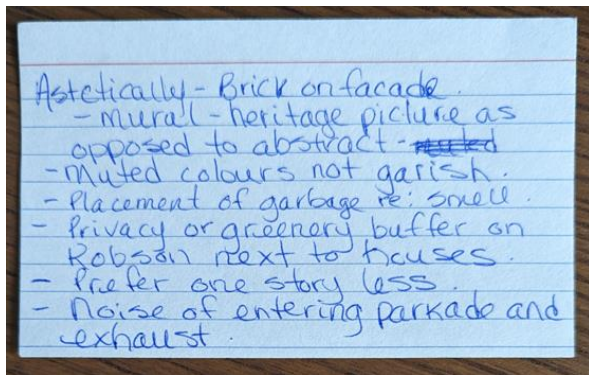 Astetically - Brick on facade.
- mural - heritage picture as
opposed to abstract -
- Muted colours not garish.
- Placement of garbage re: smell.
- Privacy or greenery buffer on
Robson next to houses.
- Prefer one story less.
- Noise of entering parkade and
exhaust.